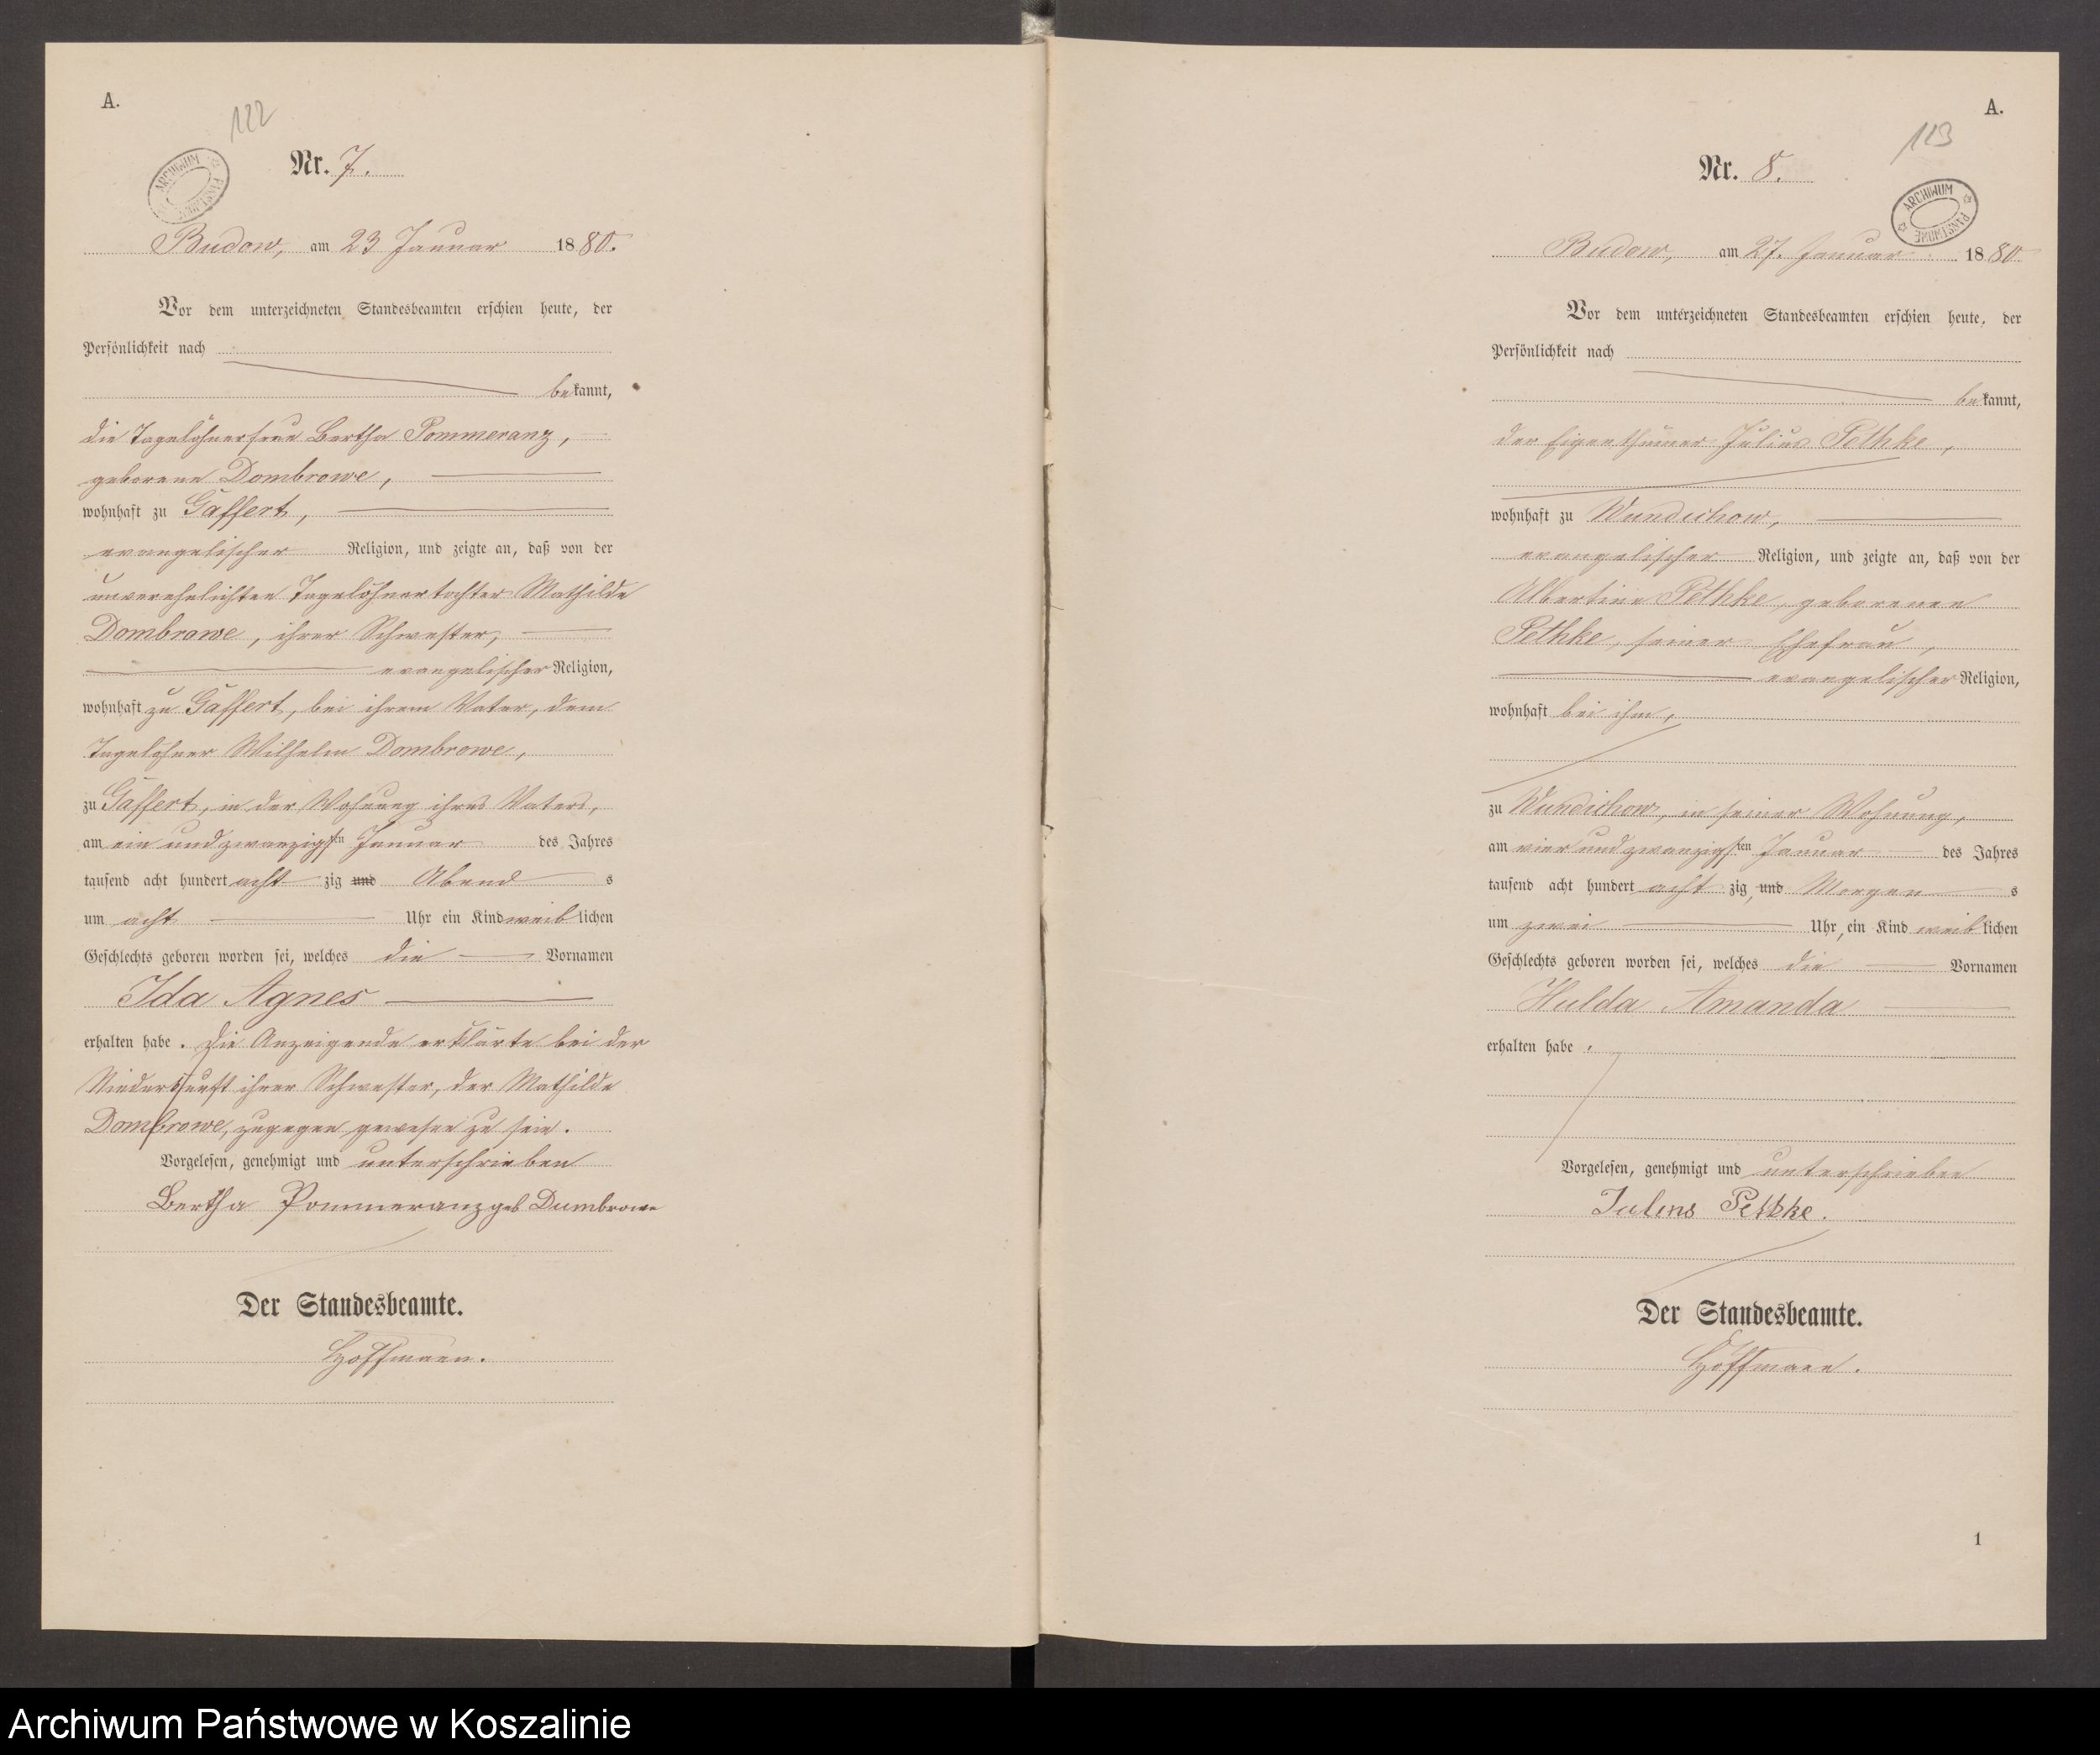 A.
122
Nr. 7.
ARCHIWUM PAŃSTWOWE
Budow, am 23 Januar 1880.
Vor dem unterzeichneten Standesbeamten erschien heute, der
Persönlichkeit nach
bekannt,
die Tagelöhnerfrau Bertha Pommeranz,
geborene Dombrowe,
wohnhaft zu Gaffert,
evangelischer Religion, und zeigte an, daß von der
unverehelichten Tagelöhnertochter Mathilde
Dombrowe, ihrer Schwester,
evangelischer Religion,
wohnhaft zu Gaffert, bei ihrem Vater, dem
Tagelöhner Wilhelm Dombrowe,
zu Gaffert, in der Wohnung ihres Vaters,
am ein und zwanzigsten Januar des Jahres
tausend acht hundert acht zig und Abend s
um acht Uhr ein Kind weiblichen
Geschlechts geboren worden sei, welches die Vornamen
Ida Agnes
erhalten habe. Die Anzeigende erklärte bei der
Niederkunft ihrer Schwester, der Mathilde
Dombrowe, zugegen gewesen zu sein.
Vorgelesen, genehmigt und unterschrieben
Bertha Pommeranz geb Dumbrowe
Der Standesbeamte.
Hoffmann.
A.
113
Nr. 8.
ARCHIWUM PAŃSTWOWE
Budow, am 27. Januar 1880
Vor dem unterzeichneten Standesbeamten erschien heute, der
Persönlichkeit nach
bekannt,
der Eigenthümer Julius Pethke,
wohnhaft zu Wundichow,
evangelischer Religion, und zeigte an, daß von der
Albertine Pethke, geborenen
Pethke, seiner Ehefrau,
evangelischer Religion,
wohnhaft bei ihm,
zu Wundichow, in seiner Wohnung,
am vier und zwanzigsten Januar des Jahres
tausend acht hundert acht zig und Morgen s
um zwei Uhr, ein Kind weiblichen
Geschlechts geboren worden sei, welches die Vornamen
Hulda Amanda
erhalten habe.
Vorgelesen, genehmigt und unterschrieben
Julius Pethke.
Der Standesbeamte.
Hoffmann.
1
Archiwum Państwowe w Koszalinie